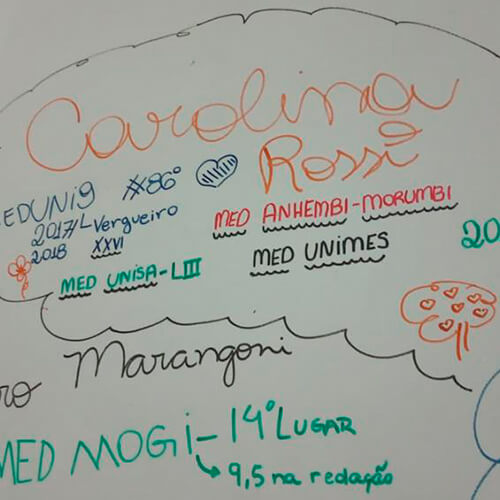 Carolina
Rossi
EDUNI9 #86°
2017/L Vergueiro
2018 XXVI
MED ANHEMBI-MORUMBI
MED UNISA-LIII
MED UNIMES
20
ro Marangoni
MED MOGI - 14° LUGAR
9,5 na redação